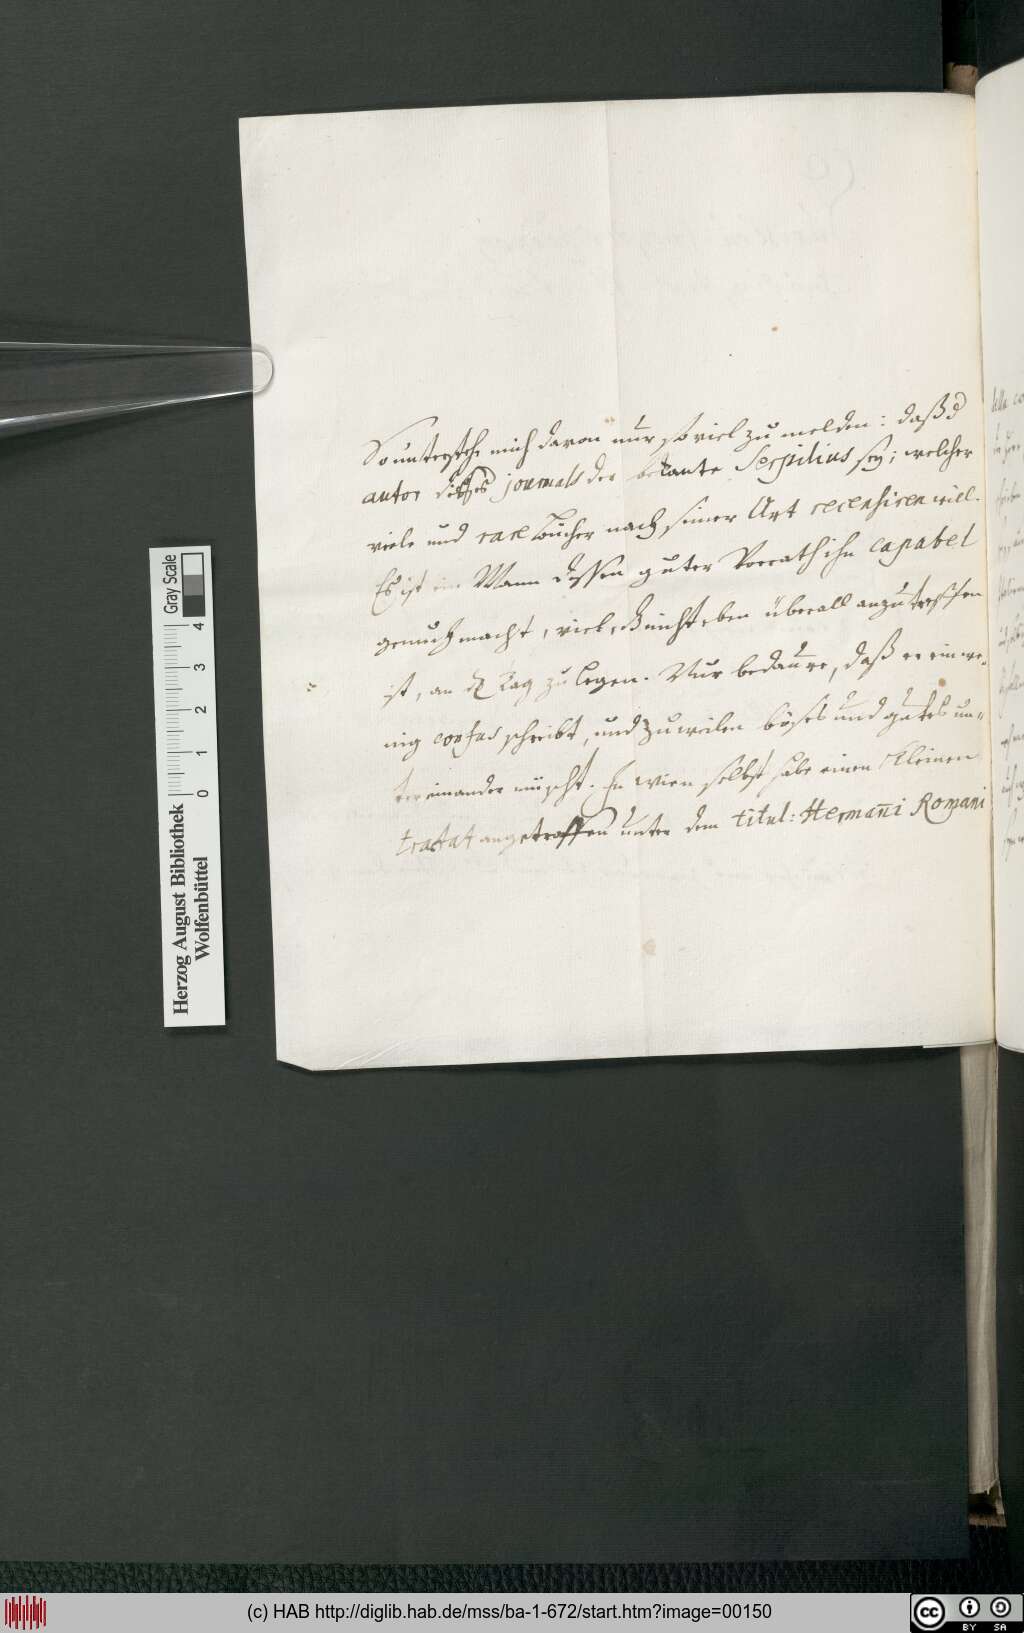 So unterstehe mich davon nur so viel zu melden: daß d
autor dieses journals der bekante Serpilius sey; welcher
viele und rare bücher nach seiner Art recensiren will.
Es ist ein Mann dessen guter Vorrath ihn capabel
genuch macht, viel, nicht eben überall anzutreffen
ist, an Tag zu legen. Nur bedaure, daß er ein we-
nig confus schreibt, und zuweilen böses und gutes un-
ter einander mischt. In Wien selbst habe einen kleinen
tractat angetroffen unter dem titul: Hermañi Romani
Gray Scale
0 1 2 3 4
Herzog August Bibliothek
Wolfenbüttel
(c) HAB http://diglib.hab.de/mss/ba-1-672/start.htm?image=00150
cc BY SA